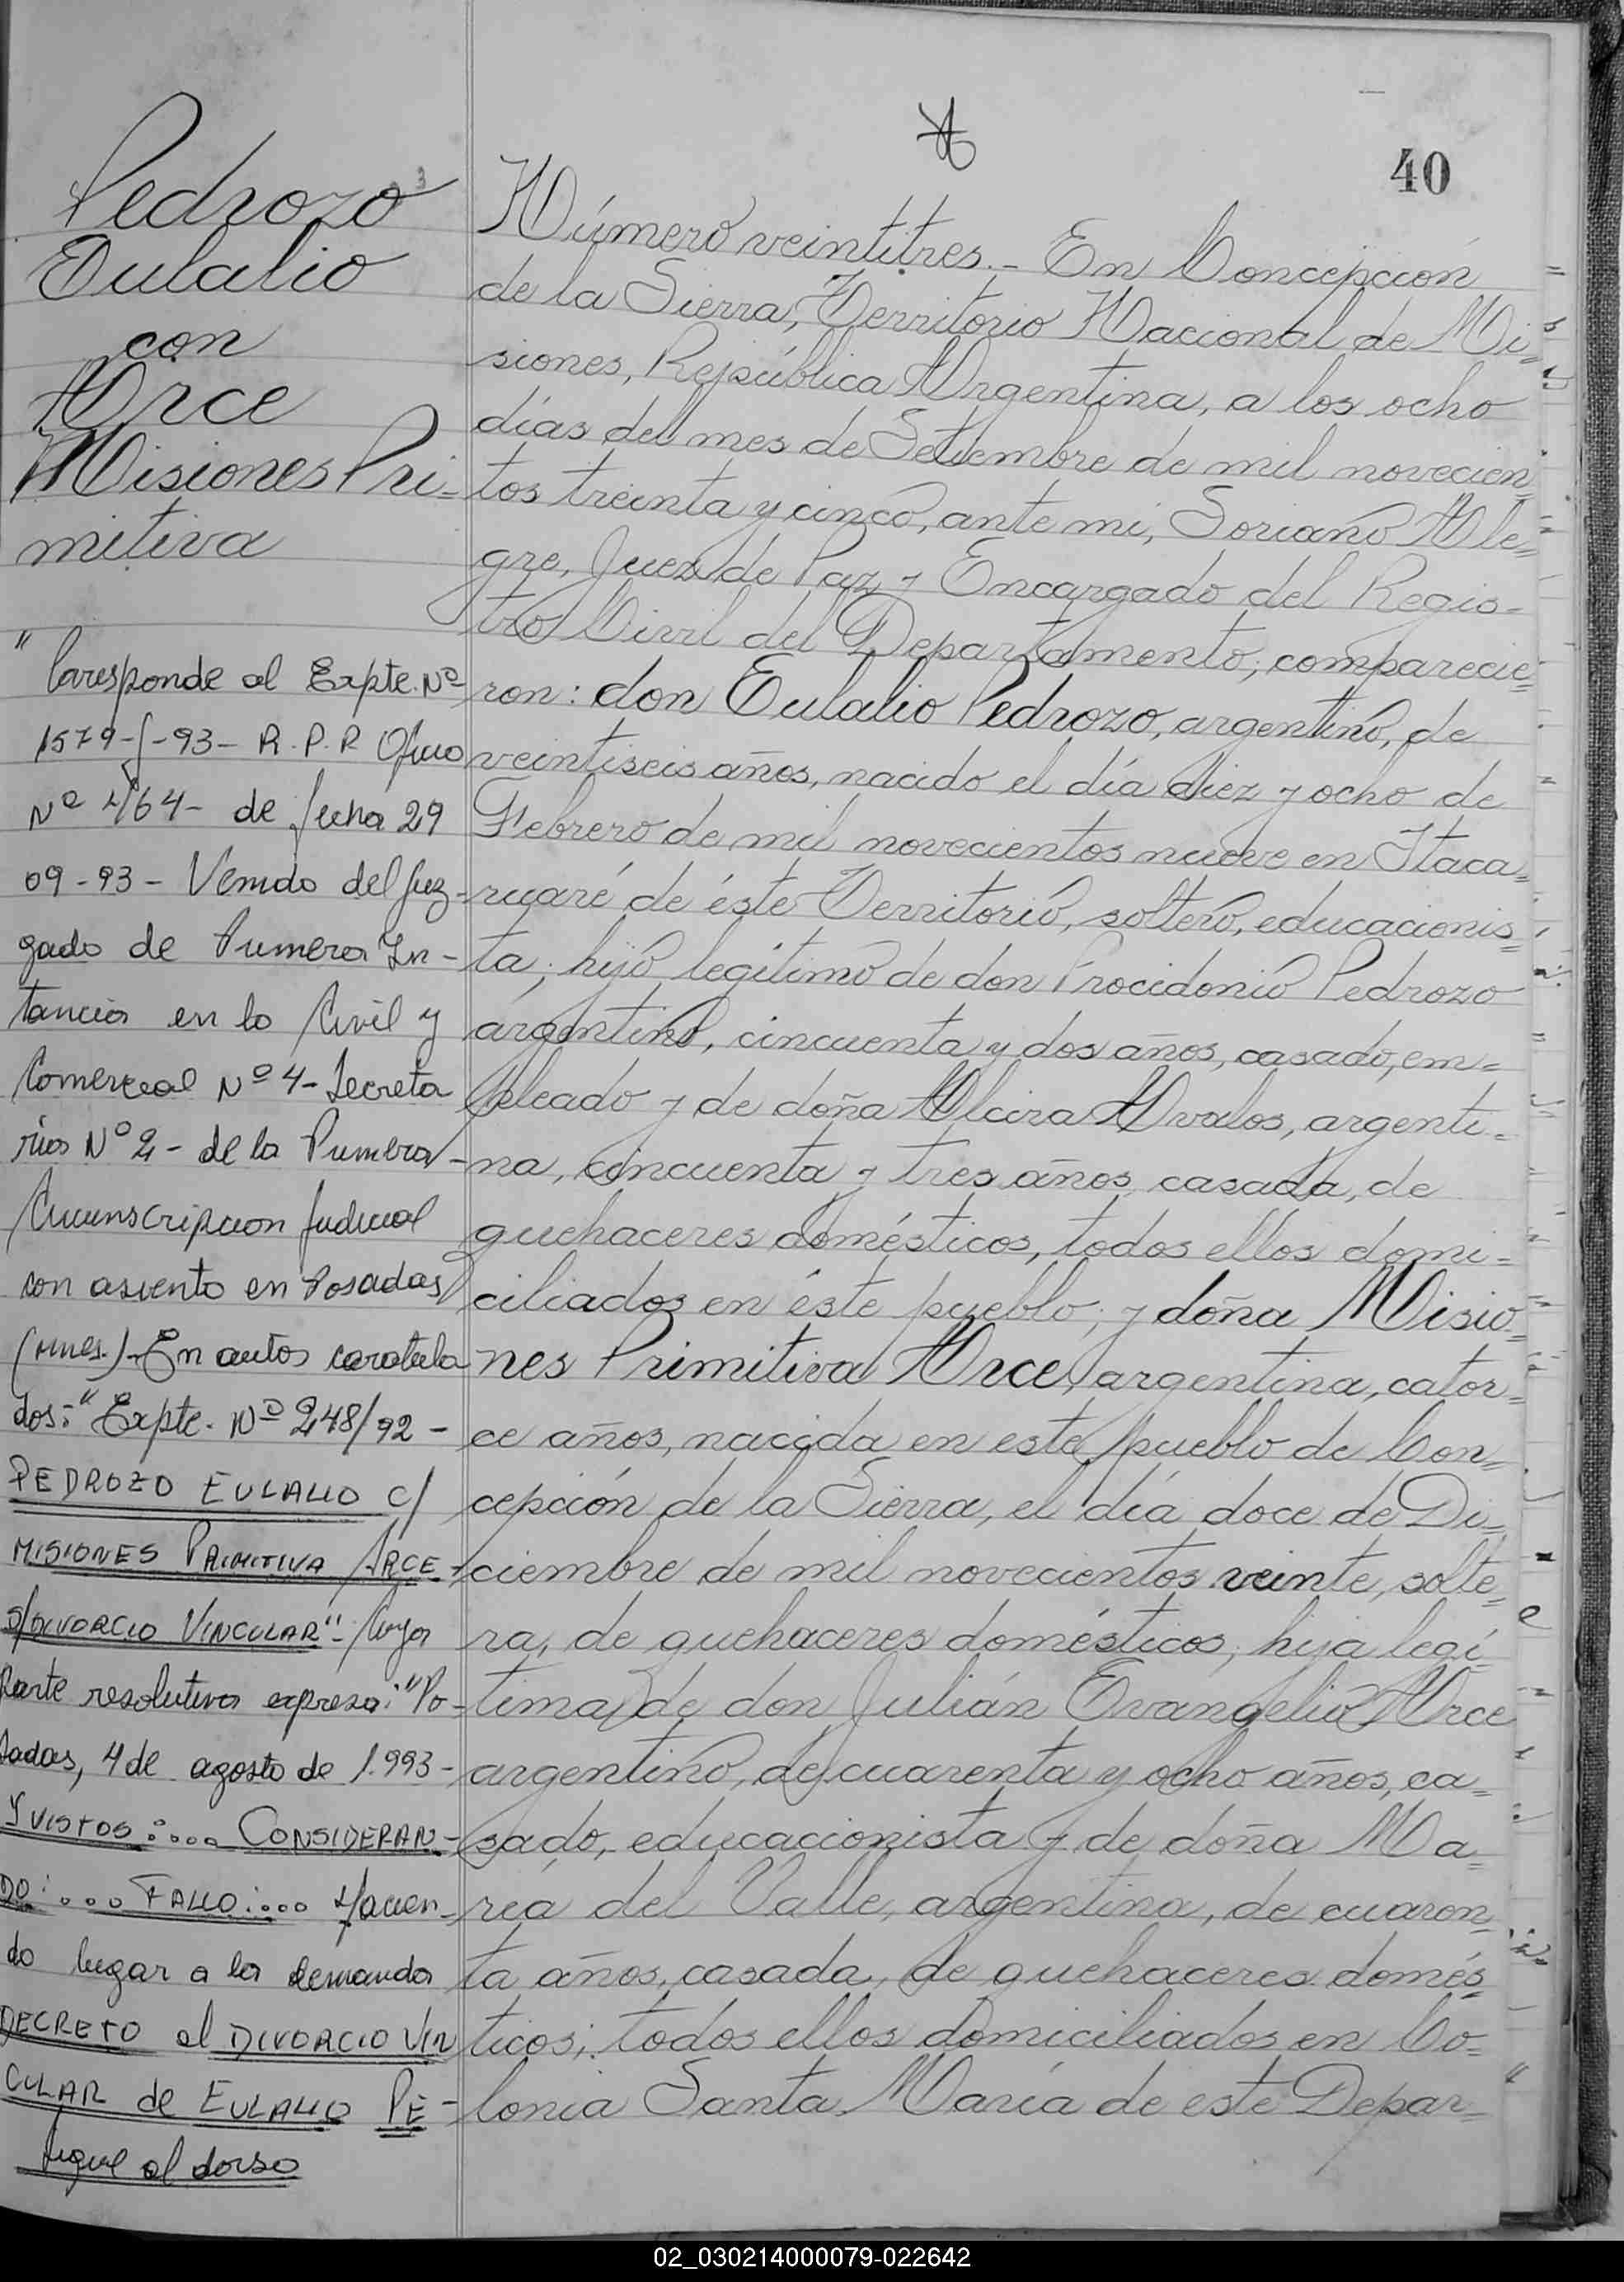 40
Pedrozo
Eulalio
con
Arce
Misiones Pri-
mitiva
"Corresponde al Expte. Nº
1579-J-93- R.P.R Oficio
Nº 464- de fecha 29
09-93- Venido del Juz-
gado de Primera In-
tancia en lo Civil y
Comercial Nº 4- Secreta
ria Nº 2- de la Primera
Circunscripcion Judicial
con asiento en Posadas
(Mnes.)- En autos caratula
dos: "Expte. Nº 248/92-
PEDROZO EULALIO C/
MISIONES PRIMITIVA ARCE
S/DIVORCIO VINCULAR"- Cuya
Parte resolutiva expresa: "Po-
sadas, 4 de agosto de 1.993-
Y VISTOS:.... CONSIDERAN-
DO:.... FALLO:.... Hacien-
do lugar a la demanda
DECRETO el DIVORCIO VIN
CULAR de EULALIO PE-
sigue al dorso
Número veintitres.- En Concepción
de la Sierra, Territorio Nacional de Mi=
siones, República Argentina, a los ocho
días del mes de Setiembre de mil novecien=
tos treinta y cinco, ante mi, Soriano Ale=
gre, Juez de Paz y Encargado del Regis-
tro Civil del Departamento, comparecie=
ron: don Eulalio Pedrozo, argentino, de
veintiseis años, nacido el día diez y ocho de
Febrero de mil novecientos nueve en Itaca=
ruaré de éste Territorio, soltero, educacionis=
ta, hijo legítimo de don Procidonio Pedrozo
argentino, cincuenta y dos años, casado, em=
pleado y de doña Alcira Avalos, argenti=
na, cincuenta y tres años, casada, de
quehaceres domésticos, todos ellos domi=
ciliados en éste pueblo; y doña Misio=
nes Primitiva Arce, argentina, cator=
ce años, nacida en este pueblo de Con=
cepción de la Sierra, el día doce de Di=
ciembre de mil novecientos veinte, solte=
ra, de quehaceres domésticos, hija legí=
tima de don Julián Evangelio Arce
argentino, de cuarenta y ocho años, ca=
sado, educacionista y de doña Ma=
ría del Valle, argentina, de cuaren=
ta años, casada, de quehaceres domés=
ticos; todos ellos domiciliados en Co=
lonia Santa María de este Depar=
02_030214000079-022642